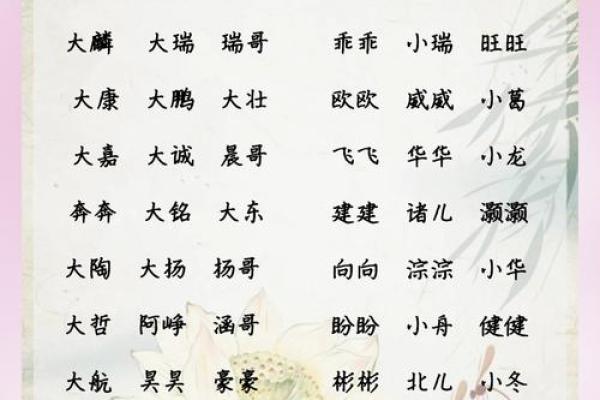 大麟 大瑞 瑞哥 乖乖 小瑞 旺旺
大康 大鹏 大壮 欧欧 威威 小葛
大嘉 大诚 晨哥 飞飞 华华 小龙
奔奔 大铭 大东 建建 诸儿 灏灏
大陶 大扬 扬哥 向向 淙淙 小华
大哲 阿峥 涵哥 盼盼 小舟 健健
大航 昊昊 豪豪 彬彬 北儿 小冬